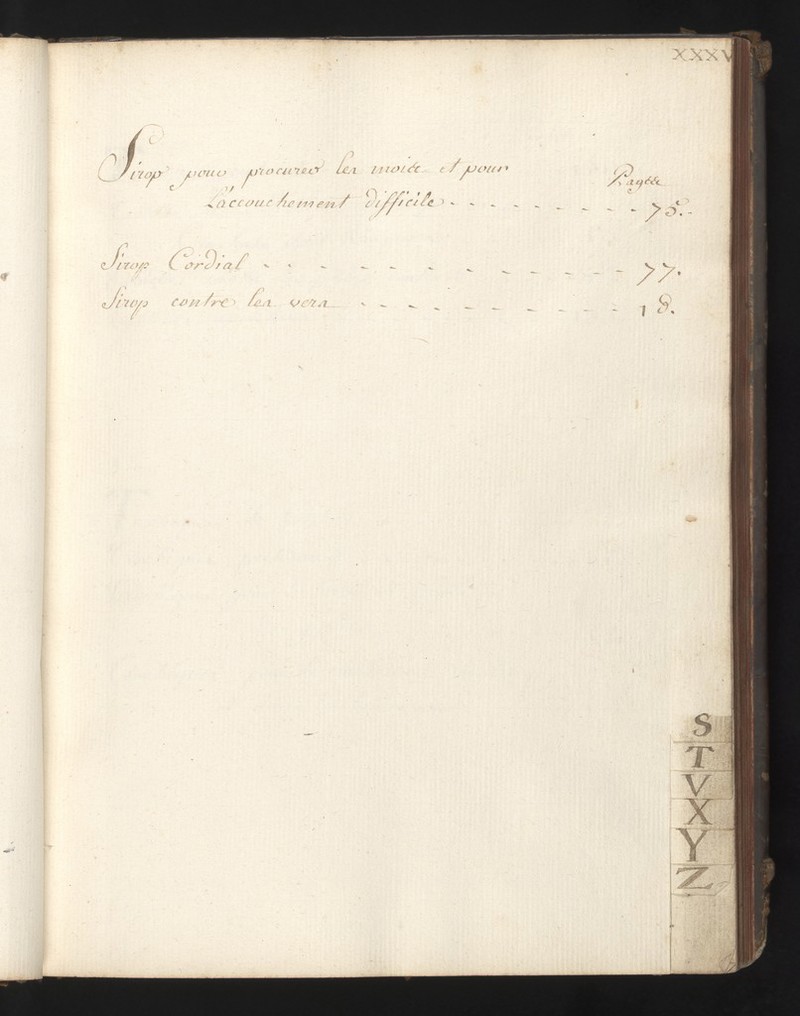 XXXV
Sirop pour procurer les mois et pour
L'accouchement difficile - - - - - - - - - 75.
Sirop Cordial - - - - - - - - - - - - 77.
Sirop contre les vers - - - - - - - - - - - 18.
S
T
V
X
Y
Z